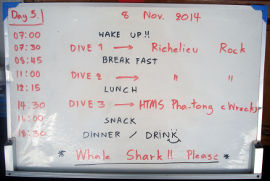 Day 5. 8 Nov. 2014
07:00 WAKE UP!!
07:30 DIVE 1 → Richelieu Rock
08:45 BREAK FAST
11:00 DIVE 2 → " "
12:15 LUNCH
14.30 DIVE 3 → HTMS Pha-tong
16:00 SNACK
18:30 DINNER / DRINK
* Whale Shark!! Please *